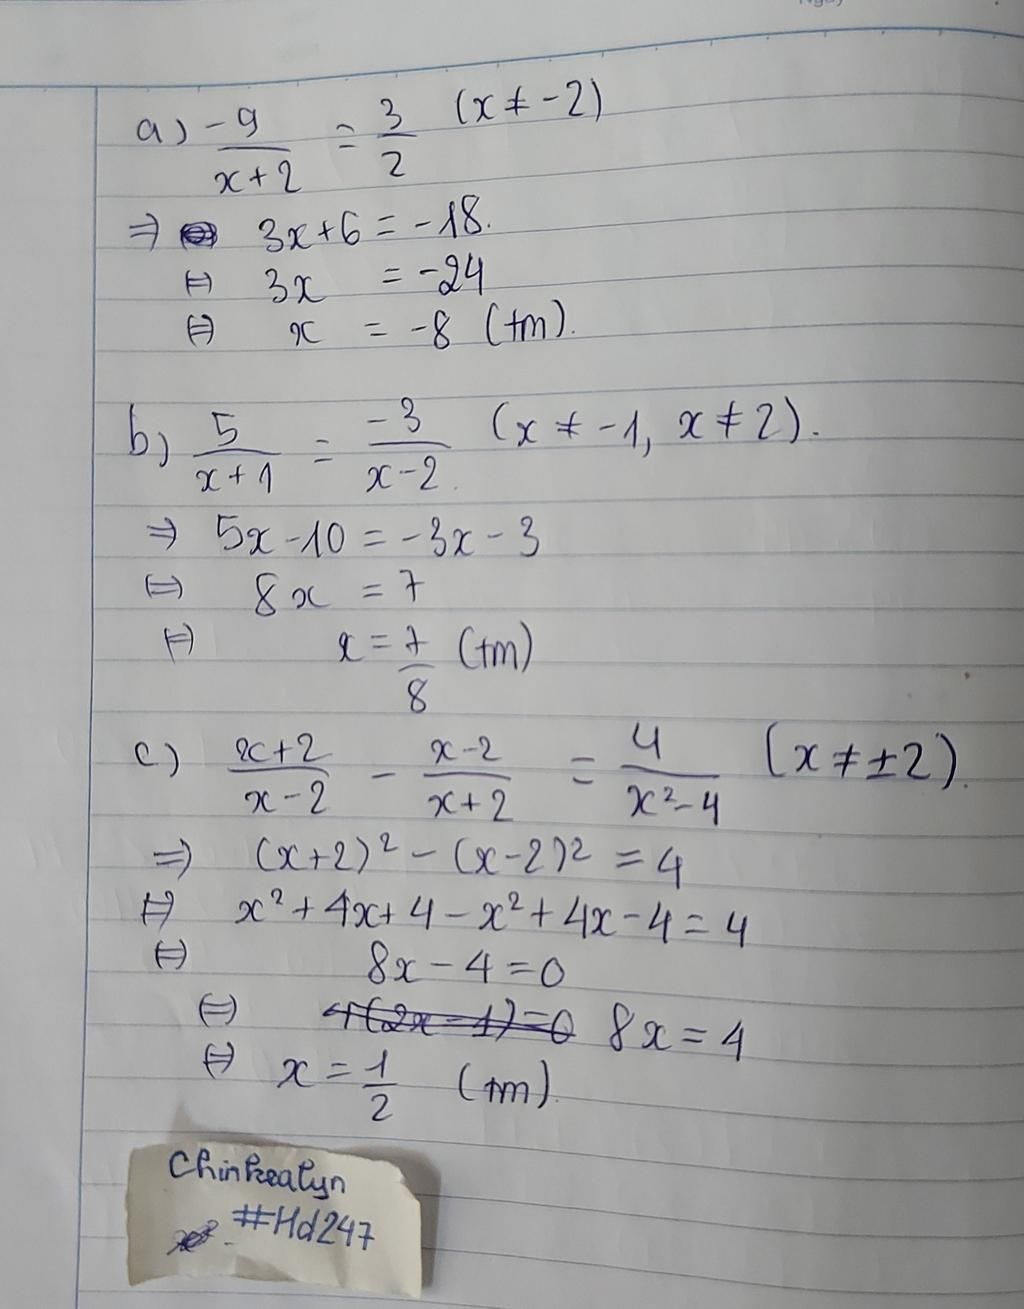 a) -9/(x+2) = 3/2 (x ≠ -2)
⇒ 3x + 6 = -18.
⇔ 3x = -24
⇔ x = -8 (tm).
b) 5/(x+1) = -3/(x-2) (x ≠ -1, x ≠ 2).
⇒ 5x - 10 = -3x - 3
⇔ 8x = 7
⇔ x = 7/8 (tm)
c) (x+2)/(x-2) - (x-2)/(x+2) = 4/(x²-4) (x ≠ ±2).
⇒ (x+2)² - (x-2)² = 4
⇔ x² + 4x + 4 - x² + 4x - 4 = 4
⇔ 8x - 4 = 0
⇔ 4(2x-1)=0 8x = 4
⇔ x = 1/2 (tm).
Chinkealyn
#Hd247